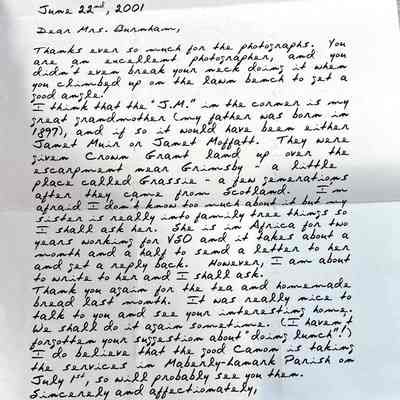 June 22nd, 2001
Dear Mrs. Burnham,
Thanks ever so much for the photographs. You
are an excellent photographer, and you
didn't even break your neck doing it when
you climbed up on the lawn bench to get a
good angle!
I think that the "J.M." in the corner is my
great grandmother (my father was born in
1897), and if so it would have been either
Janet Muir or Janet Moffatt. They were
given Crown Grant land up over the
escarpment near Grimsby - a little
place called Grassie - a few generations
after they came from Scotland. I'm
afraid I don't know too much about it but my
sister is really into family tree things so
I shall ask her. She is in Africa for two
years working for VSO and it takes about a
month and a half to send a letter to her
and get a reply back. However, I am about
to write to her and I shall ask.
Thank you again for the tea and homemade
bread last month. It was really nice to
talk to you and see your interesting home.
We shall do it again sometime. (I haven't
forgotten your suggestion about "doing lunch"!)
I do believe that the good Canon is taking
the services in Maberly-Lanark Parish on
July 1st, so will probably see you then.
Sincerely and affectionately,